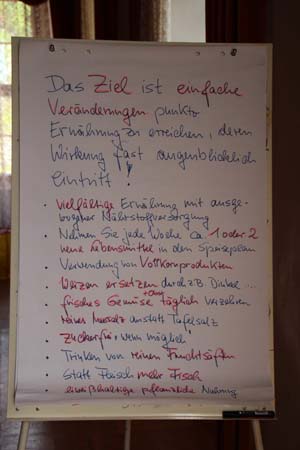 Das Ziel ist einfache
Veränderungen punkto
Ernährung zu erreichen, deren
Wirkung fast augenblicklich
eintritt!
• vielfältige Ernährung mit ausge-
wogener Nährstoffversorgung
• Nehmen Sie jede Woche ca. 1 oder 2
neue Lebensmittel in den Speiseplan
• Verwendung von Vollkornprodukten
• Weizen ersetzen durch z.B. Dinkel ...
• frisches Gemüse täglich verzehren
• reines Meersalz anstatt Tafelsalz
• zuckerfrei, wenn möglich
• Trinken von reinen Fruchtsäften
• Statt Fleisch mehr Fisch
• eiweißhaltige pflanzliche Nahrung